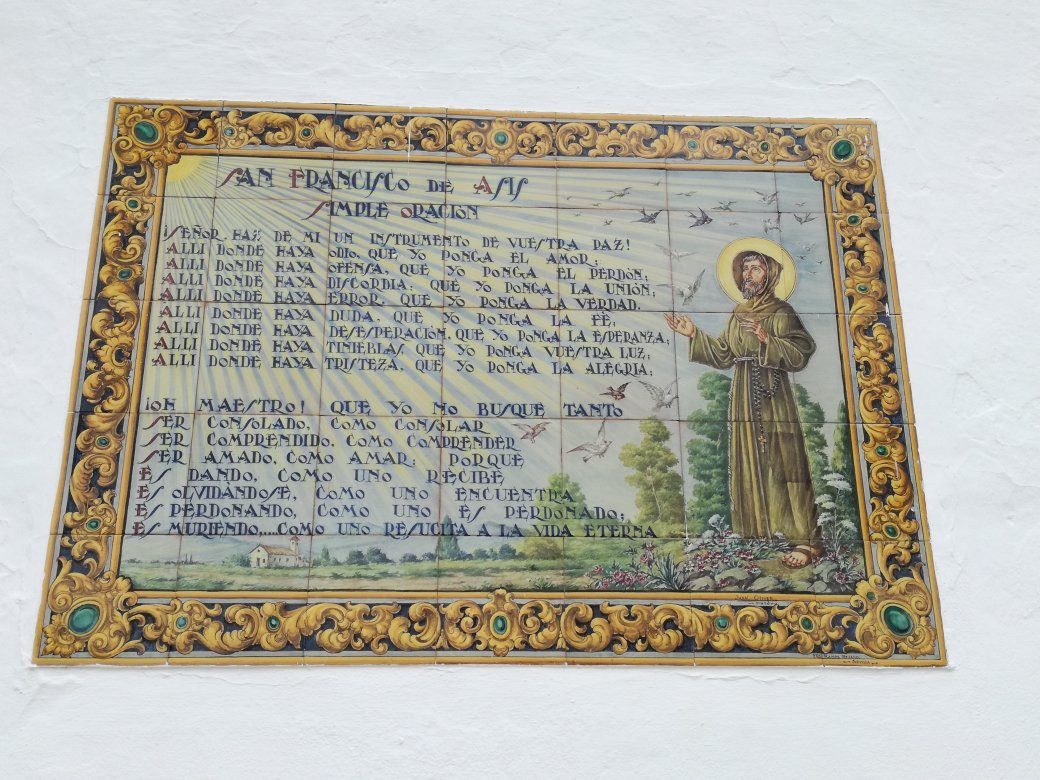 SAN FRANCISCO DE ASIS
SIMPLE ORACION
¡SEÑOR, HAZ DE MI UN INSTRUMENTO DE VUESTRA PAZ!
ALLI DONDE HAYA ODIO, QUE YO PONGA EL AMOR;
ALLI DONDE HAYA OFENSA, QUE YO PONGA EL PERDÓN;
ALLI DONDE HAYA DISCORDIA; QUE YO PONGA LA UNIÓN;
ALLI DONDE HAYA ERROR, QUE YO PONGA LA VERDAD.
ALLI DONDE HAYA DUDA, QUE YO PONGA LA FÉ;
ALLI DONDE HAYA DESESPERACIÓN, QUE YO PONGA LA ESPERANZA;
ALLI DONDE HAYA TINIEBLAS, QUE YO PONGA VUESTRA LUZ;
ALLI DONDE HAYA TRISTEZA, QUE YO PONGA LA ALEGRIA;
¡OH MAESTRO! QUE YO NO BUSQUE TANTO
SER CONSOLADO, COMO CONSOLAR
SER COMPRENDIDO, COMO COMPRENDER
SER AMADO, COMO AMAR; PORQUE
ES DANDO, COMO UNO RECIBE
ES OLVIDÁNDOSE, COMO UNO ENCUENTRA
ES PERDONANDO, COMO UNO ES PERDONADO;
ES MURIENDO,....COMO UNO RESUCITA A LA VIDA ETERNA